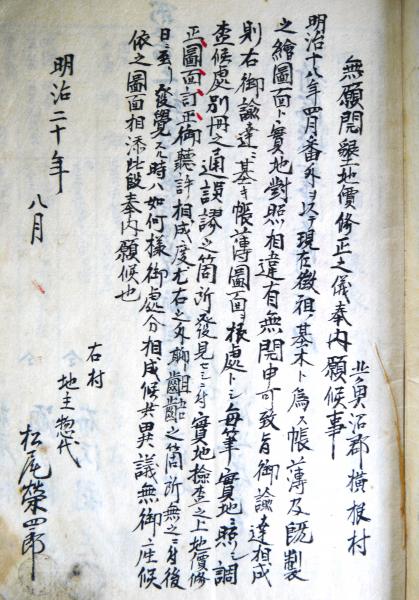 北魚沼郡横根村
無願開墾地價修正之儀奉内願候事
明治十八年四月番外ヲ以テ現在徴租ノ基本ト為ス帳薄及既製
之繪圖面ト實地對照相違有無開申可致旨御諭達相成
則右御諭達ニ基キ帳薄圖面ヲ根處トシ毎筆實地ニ照シ調
査候處別冊之通誤謬之箇所發見セシニ付實地檢査之上地價修
正圖面訂正御聽許相成度尤右之外聊齟齬之箇所無之ニ付後
日ニ至リ發覺スル時ハ如何樣御處分相成候共異議無御座候
依之圖面相添此段奉内願候也
明治二十年
八月
右村
地主惣代
松尾榮四郎